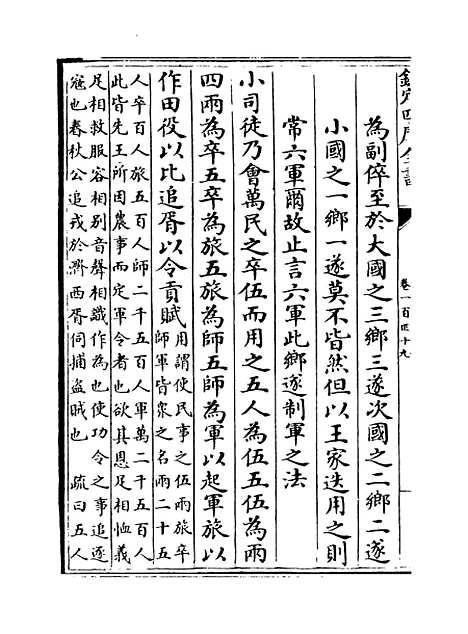 欽定四庫全書
卷一百四十九
為副倅至於大國之三鄉三遂次國之二鄉二遂
小國之一鄉一遂莫不皆然但以王家迭用之則
常六軍爾故止言六軍此鄉遂制軍之法
小司徒乃會萬民之卒伍而用之五人為伍五伍為兩
四兩為卒五卒為旅五旅為師五師為軍以起軍旅以
作田役以比追胥以令貢賦
用謂使民事之伍兩旅卒
師軍皆衆之名兩二十五
人卒百人旅五百人師二千五百人軍萬二千五百人
此皆先王所因農事而定軍令者也欲其恩足相恤義
足相救服容相别音聲相識作為也使功令之事追逐
寇也春秋公追戎於濟西胥伺捕盜賊也 疏曰五人